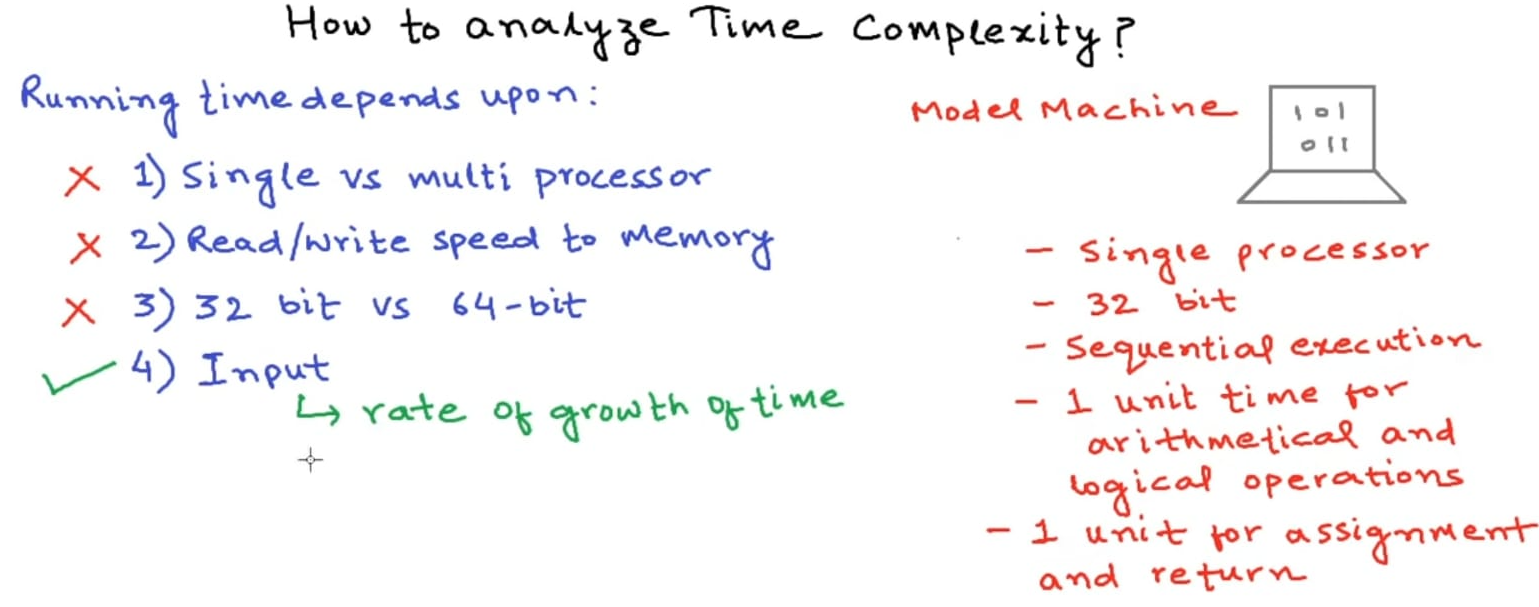 How to analyze Time Complexity?
Running time depends upon:
X 1) Single vs multi processor
X 2) Read/write speed to memory
X 3) 32 bit vs 64-bit
✓ 4) Input
↳ rate of growth of time
Model Machine
101
011
- Single processor
- 32 bit
- Sequential execution
- 1 unit time for
arithmetical and
logical operations
- 1 unit for assignment
and return